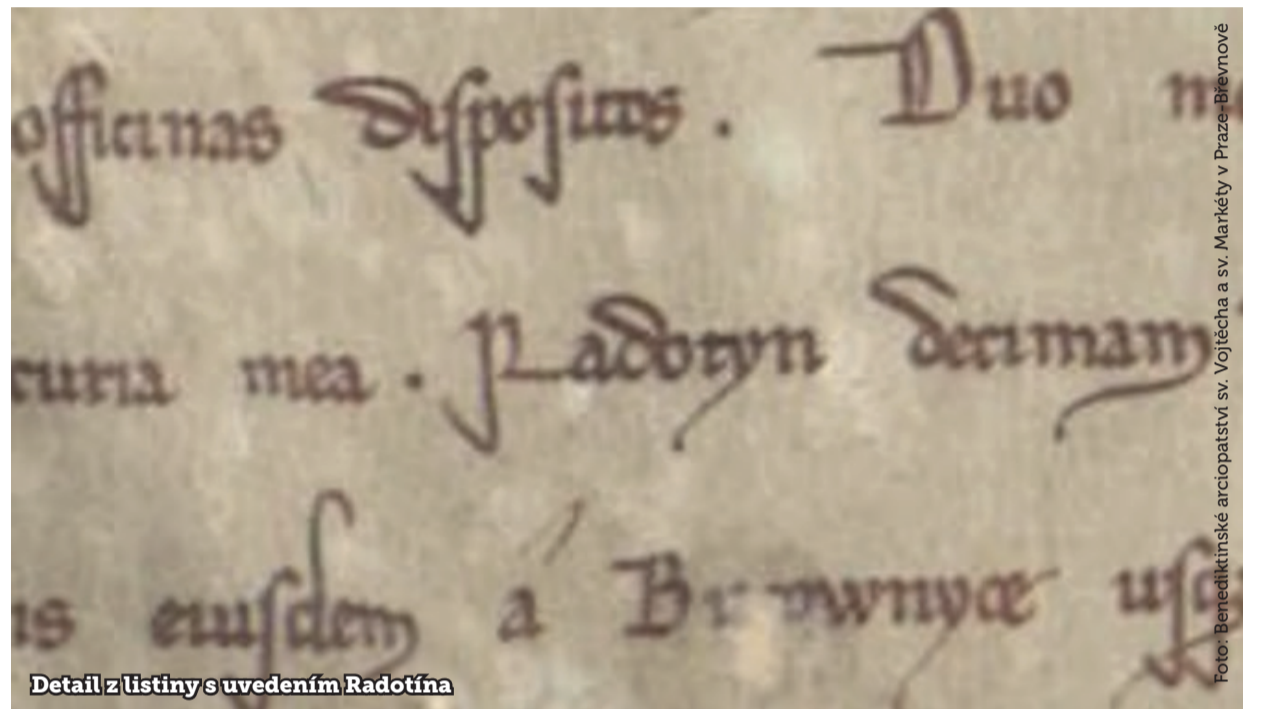 officinas dispositos . Duo
curia mea . Radotyn decimam
is eiusdem a
Detail z listiny s uvedením Radotína
Foto: Benediktinské arciopatství sv. Vojtěcha a sv. Markéty v Praze-Břevnově